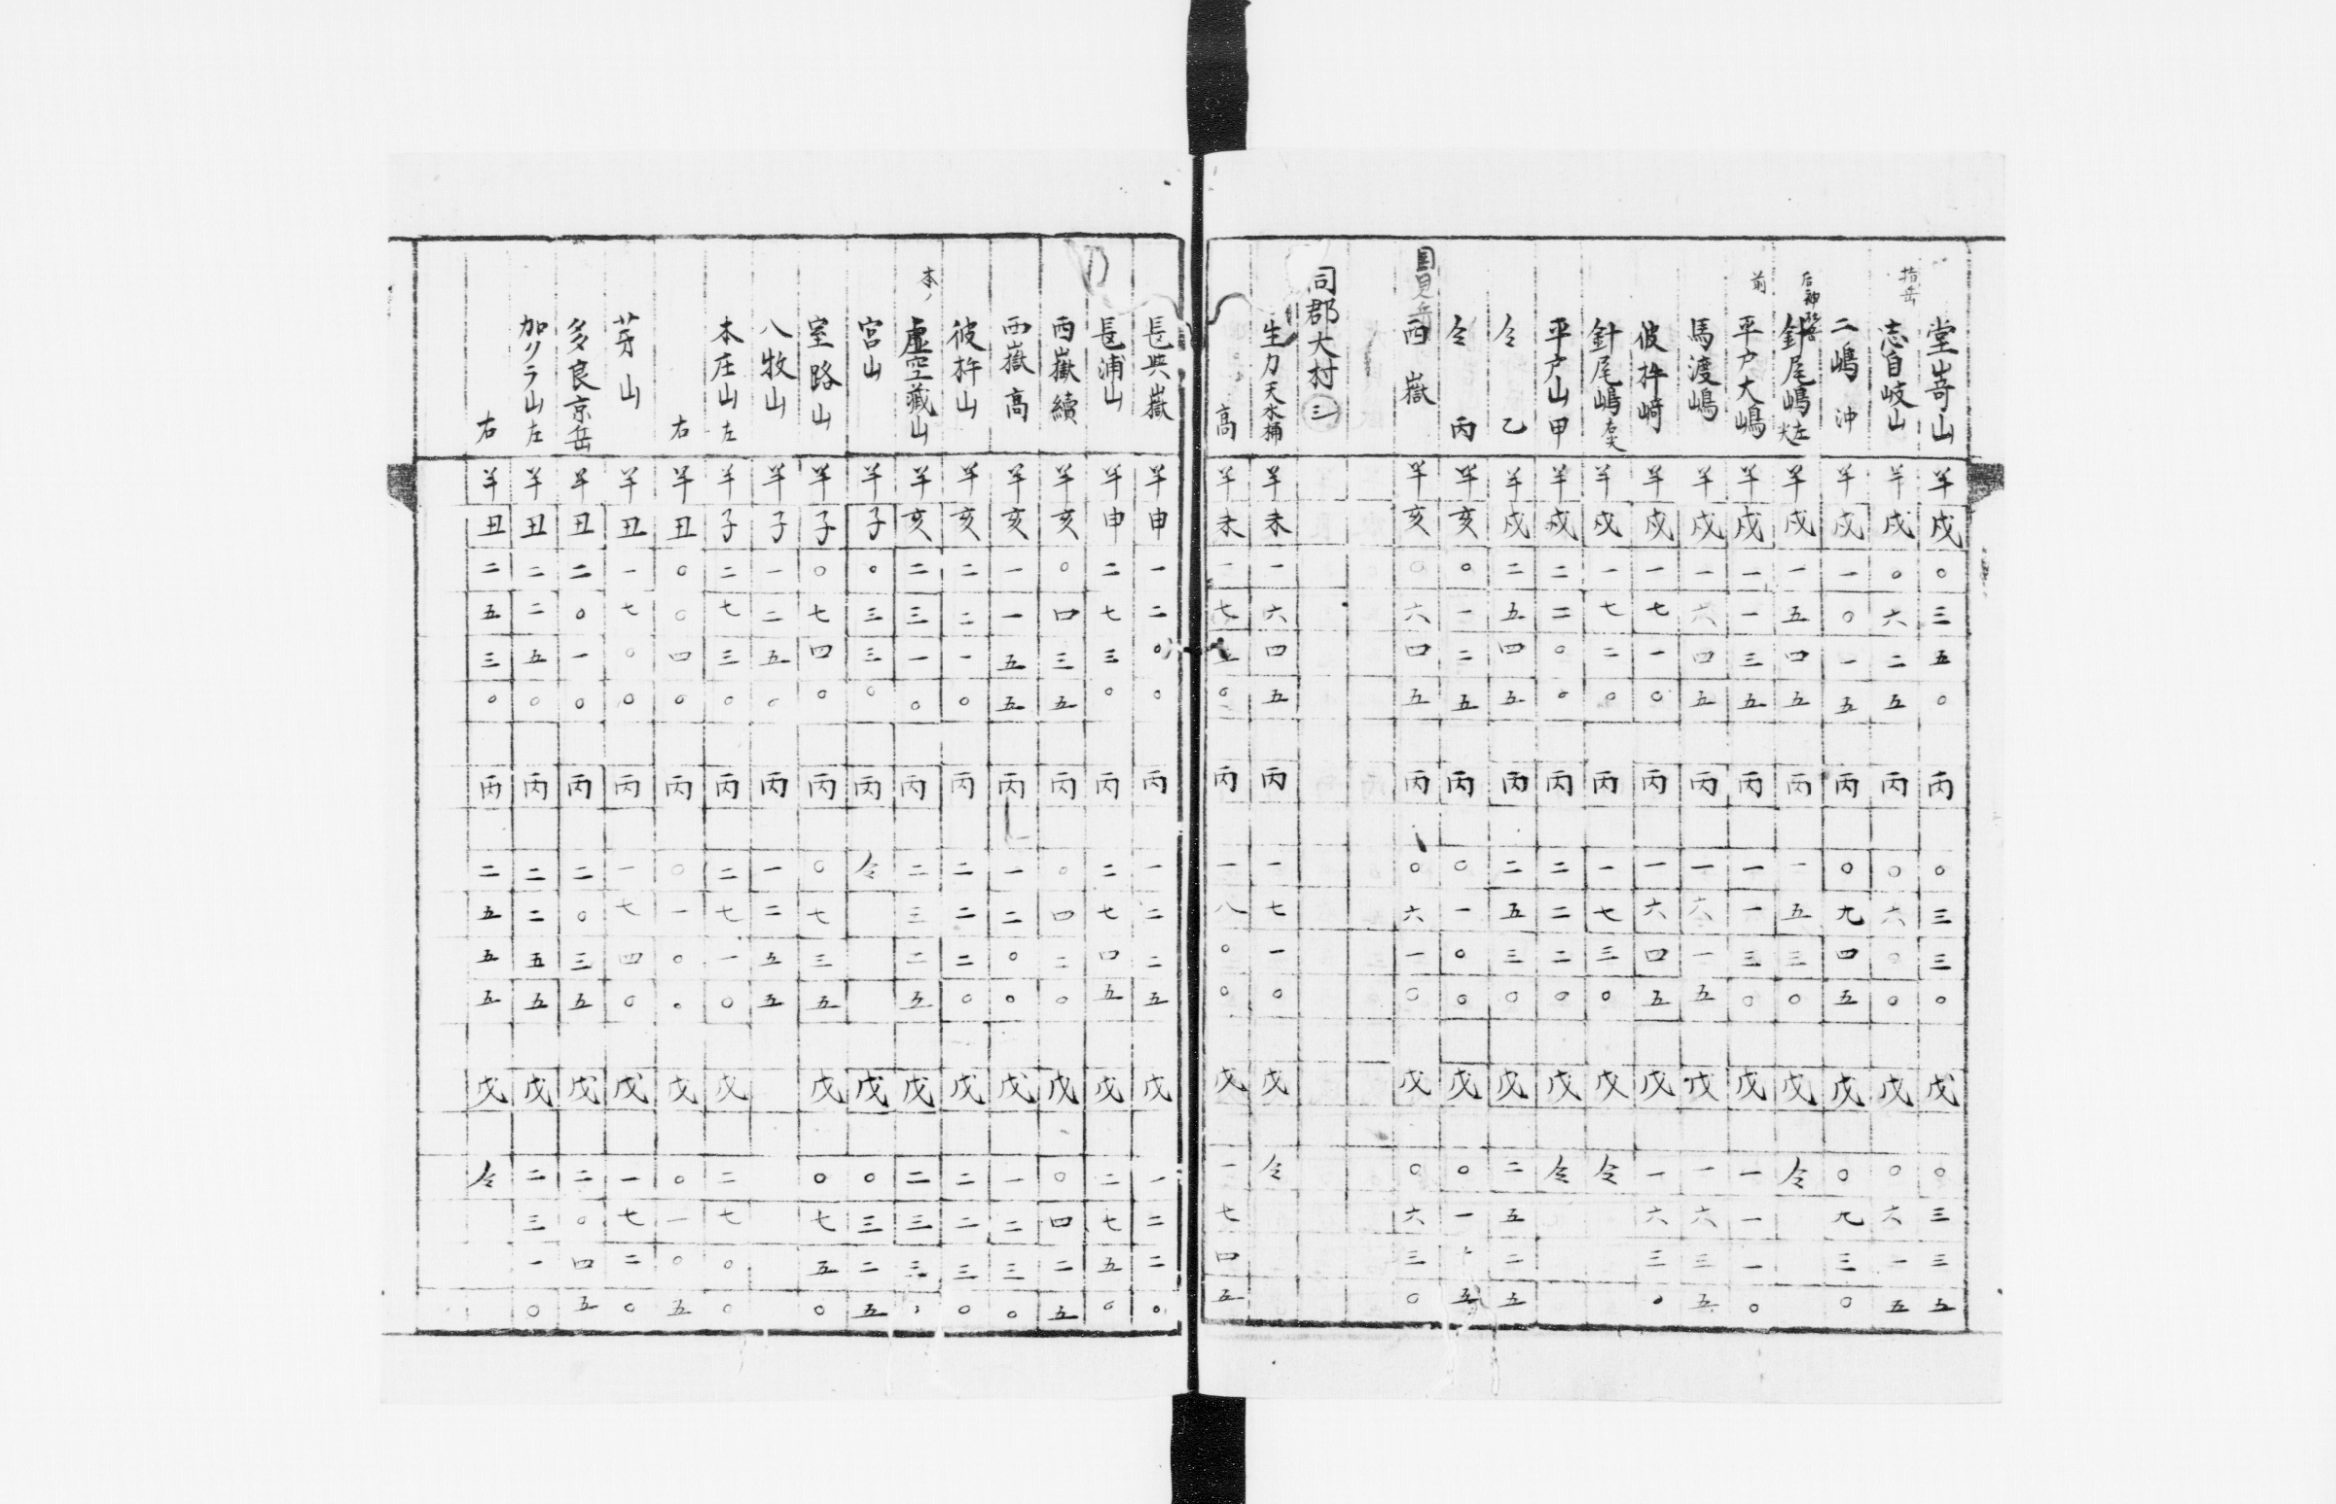 堂﨑山 半戌〇三五〇 丙〇三三〇 戊〇三三五
志自岐山 半戌〇六二五 丙〇六〇〇 戊〇六一五
二嶋 沖 半戌一〇一五 丙〇九四五 戊〇九三〇
針尾嶋 左 半戌一五四五 丙一五三〇 戊仝
前
平戸大嶋 半戌一一三五 丙一一三〇 戊一一一〇
馬渡嶋 半戌一六四五 丙一六一五 戊一六三五
彼杵﨑 半戌一七一〇 丙一六四五 戊一六三〇
針尾嶋 半戌一七二〇 丙一七三〇 戊仝
平戸山甲 半戌二二〇〇 丙二二二〇 戊仝
仝 乙 半戌二五四五 丙二五三〇 戊二五二五
仝 丙 半亥〇一二五 丙〇一〇〇 戊〇一 五
国見岳
西嶽 半亥〇六四五 丙〇六一〇 戊〇六三〇
同郡大村 三
生力天水桶 半未一六四五 丙一七一〇 戊仝
高 半未一七 〇 丙一八〇〇 戊一七四五
長與嶽 半申一二〇〇 丙一二二五 戊一二二〇
長浦山 半申二七三〇 丙二七四五 戊二七五〇
西嶽續 半亥〇四三五 丙〇四二〇 戊〇四二五
西嶽高 半亥一一五五 丙一二〇〇 戊一二三〇
彼杵山 半亥二二一〇 丙二二二〇 戊二二三〇
本ノ
虚空蔵山 半亥二三一〇 丙二三二五 戊二三三
宮山 半子〇三三〇 丙仝 戊〇三二五
室路山 半子〇七四〇 丙〇七三五 戊〇七五〇
八牧山 半子一二五〇 丙一二五五
本庄山左 半子二七三〇 丙二七一〇 戊二七〇〇
右 半丑〇〇四〇 丙〇一〇〇 戊〇一〇五
芽山 半丑一七〇〇 丙一七四〇 戊一七二〇
多良京岳 半丑二〇一〇 丙二〇三五 戊二〇四五
加ソラ山左 半丑二二五〇 丙二二五五 戊二三一〇
右 半丑二五三〇 丙二五五五 戊仝